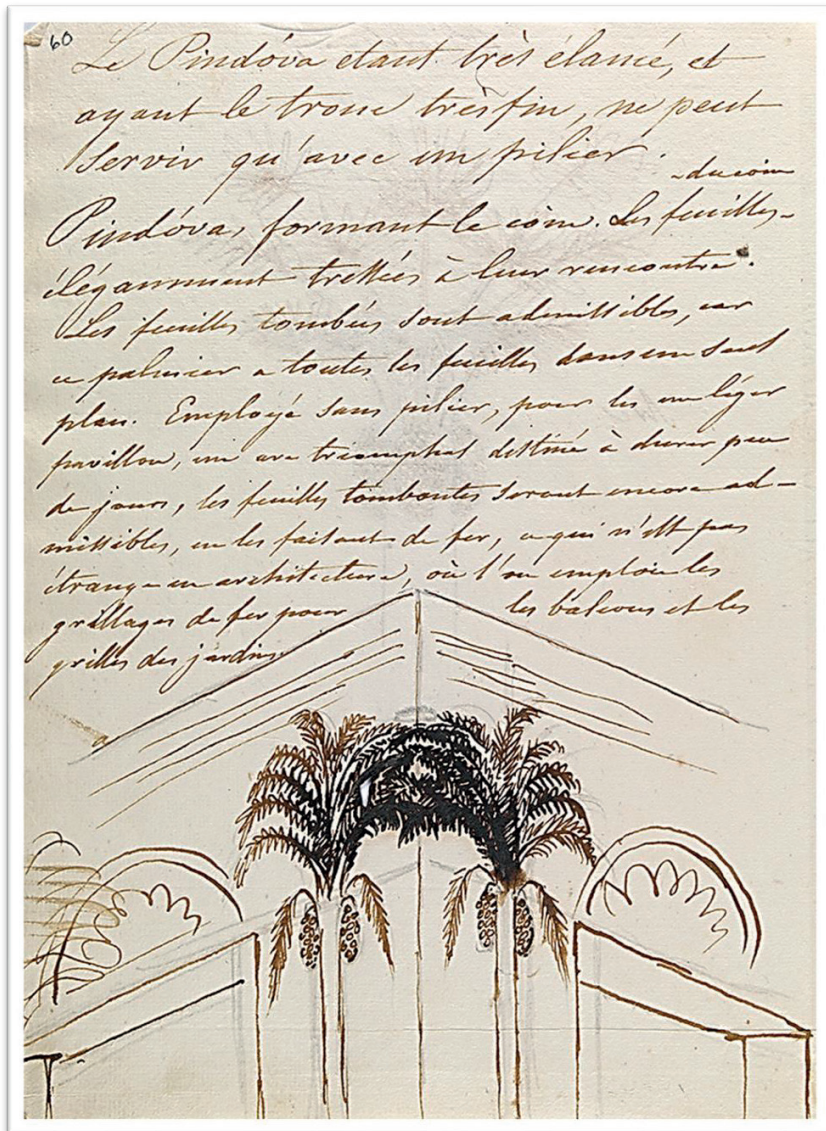 60
Le Pindóva etant très élancé, et
ayant le tronc très fin, ne peut
servir qu'avec un pilier.
Pindóvas formant le coin. Les feuilles - du coin
élégamment tressées à leur rencontre.
Les feuilles tombées sont admissibles, car
ce palmier a toutes les feuilles dans un seul
plan. Employé sans pilier, pour les un léger
pavillon, un arc triomphal destiné à durer peu
de jours, les feuilles tombantes seront encore ad-
missibles, en les faisant de fer, ce qui n'est pas
étrange en architecture, où l'on emploie les
grillages de fer pour les balcons et les
grilles des jardins